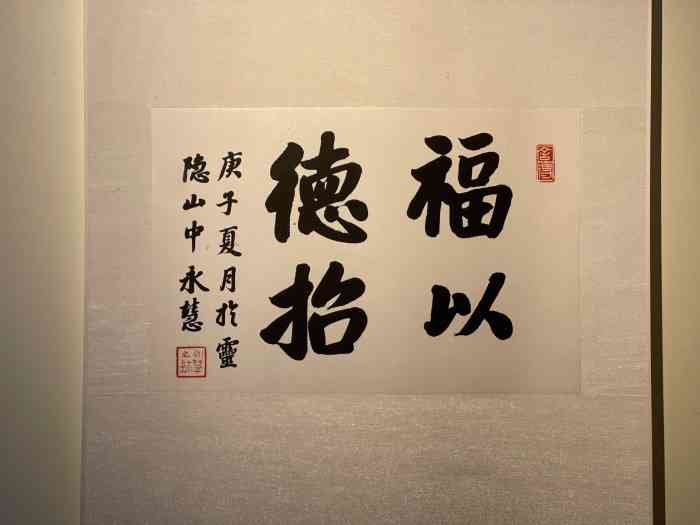 福以
德招
庚子夏月於靈
隐山中永慧